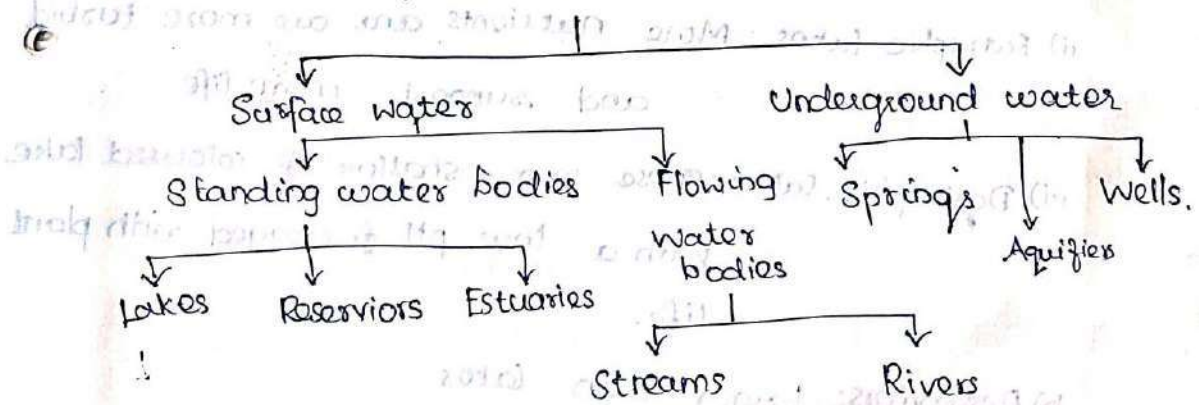 Surface water Underground water
Standing water bodies Flowing water bodies Springs Aquifiers Wells.
Lakes Reserviors Estuaries
Streams Rivers